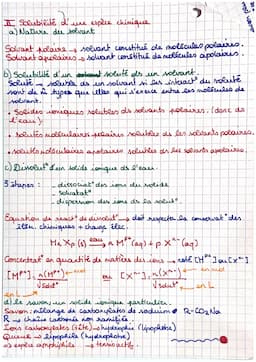 II Solubilité d'une espèce chimique
a) Nature du solvant
Solvant polaire → solvant constitué de molécules polaires.
Solvant apolaire → solvant constitué de molécules apolaires.
b) Solubilité d'un soluté ds un solvant.
Soluté → soluble ds un solvant si les interact° du soluté
sont de m̂ types que elles qui s'exerce entre les molécules de
solvant.
• Solides ioniques solubles ds solvants polaires. (donc ds
l'eau).
• solutés moléculaires polaires solubles ds les solvants polaires.
• solutés moléculaires apolaires solubles ds les solvants apolaires.
c) Dissolut° d'un solide ionique ds l'eau.
3 étapes : - dissociat° des ions du solide
- solvatat°
- dispersion des ions ds la solut°.
Equation de react° de dissolut° → doit respecter la conservat° des
élém. chimiques + charge élec.
Mα Xβ (s) eau→ α M^p+ (aq) + β X^n- (aq)
Concentrat° en quantité de matière des ions → noté [M^p+] ou [X^n-]
[M^p+] = n(M^p+) ← en mol ou [X^n-] = n(X^n-) ← en mol
V solut° V solut°
en L en L
d) le savon, un solide ionique particulier.
Savon : mélange de carboxylates de sodium R-CO2Na
R → chaîne carbonée non ramifiée
Ions carboxylates (tête) → hydrophile (lipophobe)
Queue → lipophile (hydrophobe)
→ espèce amphiphile → tensioactif.